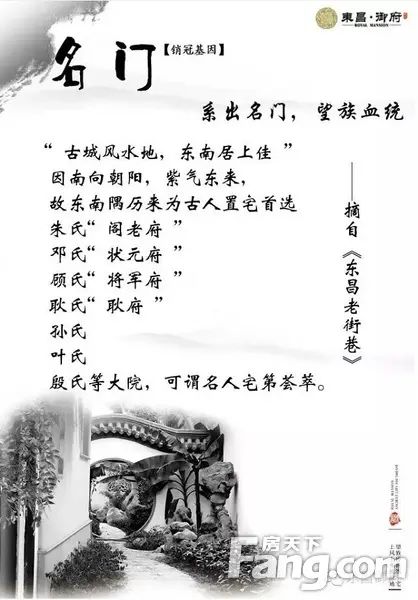 東昌·御府
ROYAL MANSION
名门【销冠基因】
系出名门，望族血统
“ 古城风水地，东南居上佳 ”
因南向朝阳，紫气东来，
故东南隅历来为古人置宅首选
朱氏“ 阁老府 ”
邓氏“ 状元府 ”
顾氏“ 将军府 ”
耿氏“ 耿府 ”
孙氏
叶氏
殷氏等大院，可谓名人宅第荟萃。
——摘自《东昌老街巷》
房天下
Fang.com